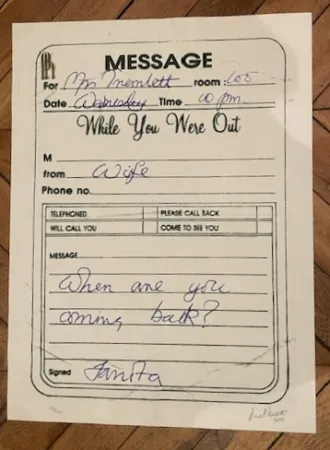 MESSAGE
For Mrs Tremlett room
Date Wednesday Time 10 pm
While You Were Out
M
from Wife
Phone no.
TELEPHONED PLEASE CALL BACK
WILL CALL YOU COME TO SEE YOU
MESSAGE
When are you
coming back?
Signed Janita